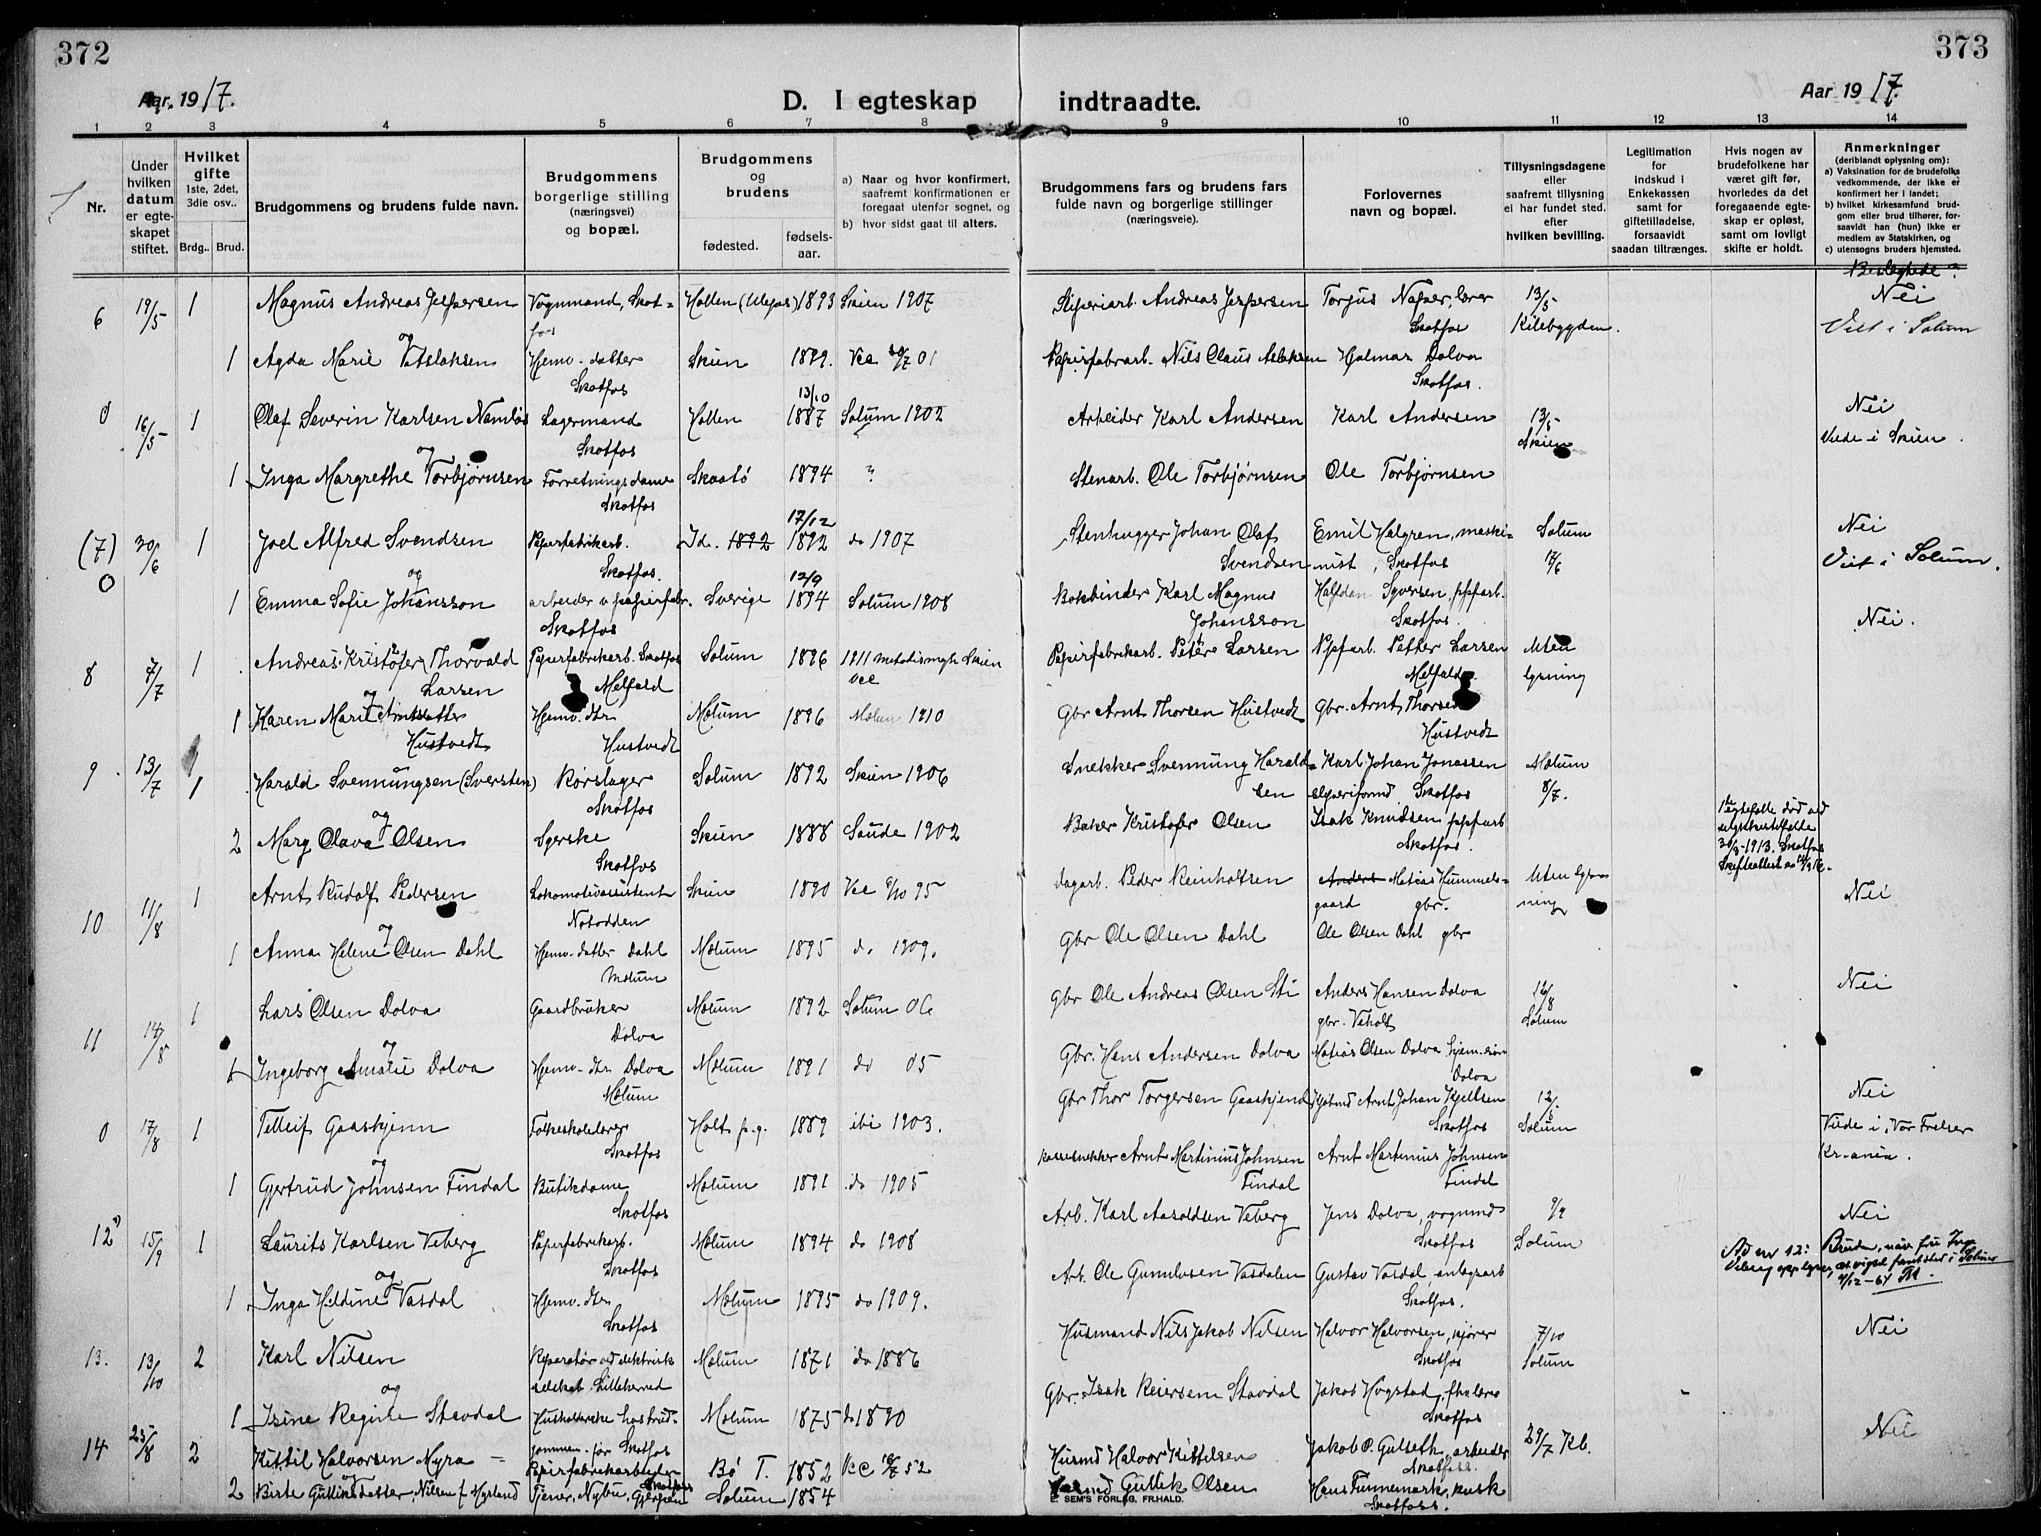 372
373
Aar. 1917.
D. I egteskap
indtraadte.
Aar 1917.
1 2 3 4 5 6 7 8 9 10 11 12 13 14
Nr.
Under hvilken datum er egteskapet stiftet.
Hvilket gifte 1ste, 2det, 3die osv..
Brdg.. Brud.
Brudgommens og brudens fulde navn.
Brudgommens borgerlige stilling (næringsvei) og bopæl.
Brudgommens og brudens
fødested.
fødsels-aar.
a) Naar og hvor konfirmert, saafremt konfirmationen er foregaat utenfor sognet, og
b) hvor sidst gaat til alters.
Brudgommens fars og brudens fars fulde navn og borgerlige stillinger (næringsveie).
Forlovernes navn og bopæl.
Tillysningsdagene eller saafremt tillysning ei har fundet sted, efter hvilken bevilling.
Legitimation for indskud i Enkekassen samt for giftetilladelse, forsaavidt saadan tiltrænges.
Hvis nogen av brudefolkene har været gift før, hvorledes da det foregaaende egteskap er opløst, samt om lovligt skifte er holdt.
Anmerkninger
(deriblandt oplysning om):
a) Vaksination for de brudefolks vedkommende, der ikke er konfirmert her i landet;
b) hvilket kirkesamfund brudgom eller brud tilhører, forsaavidt han (hun) ikke er medlem av Statskirken, og
c) utensogns bruders hjemsted.
Beslegtede?
6 19/5 1 Magnus Andreas Jespersen Vognmand, Skotfos Hollen (Ulefos) 1893 Skien 1907 Andreas Jespersen Torjus Næper, lærer Skotfos 13/5 Kilebygden. Nei Viet i Solum
og
1 Agda Marie Hjemv. datter Skotfos Skien 1899. Papirfabrarb. Nils Claus Hjalmar Dolva Skotfos.
0 16/5 1 Olaf Severin Karlsen Namløs Lagermand Skotfos Hollen 13/10 1887 Solum 1902 Arbeider Karl Andersen Karl Andersen 13/5 Skien Nei Viede i Skien.
og
1 Inga Margrethe Torbjørnsen Forretningsdame Skotfos Skaatö 1894 ? Stenarb. Ole Torbjørnsen Ole Torbjørnsen
(7) 0 30/6 1 Joel Alfred Svendsen Papirfabrikarb. Skotfos. Id. 1892 17/12 1892 do 1907 Stenhugger Johan Olaf Svendsen Emil Halgren, maskinist, Skotfos Solum 17/6 Nei Viet i Solum.
og
1 Emma Sofie Johansson arbeider v papirfabr. Skotfos Sverige 12/9 1894 Solum 1908 Bokbinder Karl Magnus Johansson Halfdan Syversen, ppfarb. Skotfos.
8 7/7 1 Andreas Kristofer Thorvald Larsen Papirfabrikarb. Skotfos Melfald Solum 1896 1911 metodismgh Skien Papirfabrikarb. Peter Larsen Ppfarb. Petter Larsen Melfald Uten lysning Nei.
og
1 Karen Marie Hustvedt Hjemv. dtr Hustvedt Melum 1896 Melum 1910 Gbr Arnt Thorsen Hustvedt Gbr. Arnt Thorsen Hustvedt
9. 13/7 1 Harald Svennungsen (Sversten) Rørslager Skotfos Solum 1892 Skien 1906 Snekker Svennung Haraldsen Karl Johan Jonassen Skotfos Melum 8/7.
og
2 Marg Olava Olsen Syerske Skotfos Skien 1888 Saude 1902 Baker Kristofer Olsen Isak Knudsen ppfarb Skotfos. 1ste egtefælle død 1913. Skotfos
10 11/8 1 Arnt Rudolf Pedersen Lokomotivassistent Notodden Skien 1890 Dagarb. Peder Reinholtsen Anders Matias Hummelsgaard gbr. Uten lysning Nei
og
1 Anna Helene Olsen Dahl Hjemv. datter Dahl Melum Melum 1895 do 1909. Gbr Ole Olsen Dahl Ole Olsen Dahl gbr
11 14/8 1 Lars Olsen Dolva Gaardbruker Dolva Melum 1892 Solum 06 Gbr Ole Andreas Olsen Sti Anders Hansen Dolva gbr. Veholt 16/8 Solum Nei
og
1 Ingeborg Amalie Dolva Hjemv. dtr Dolva Melum Melum 1891 do 05 Gbr. Hans Andersen Dolva Matias Olsen Dolva hjem. søn Dolva
0 17/8 1 Tellif Gaaskjenn Folkeskolelærer Skotfos Holt p.g. 1889 ibi 1903. Gbr Thor Torgersen Gaaskjenn Arnt Johan Kjeldsen Skotfos 12/8 Solum Nei Viede i Vor Frelser Kr.ania.
og
1 Gjertrud Johnsen Findal Butikdame Skotfos Melum 1891 do 1905 Arnt Martinius Johnsen Findal Arnt Martinius Johnsen Findal
12 15/9 1 Laurits Karlsen Veberg Papirfabrikarb. Skotfos Melum 1894 do 1908 Arb. Karl Aasoldsen Veberg Jens Dolva, vognmd Skotfos 9/9 Solum Nei
Ad nr 12: Bruden, nåv. fru Inga Veberg opplyser, at vigsel fant sted i Solum 4/12-64
og
1 Inga Hildine Vasdal Hjemv. dtr Skotfos Melum 1895 do 1909. Arb. Ole Gunulvsen Vasdalen Gustav Vasdal, anlegsarb Skotfos.
13. 13/10 2 Karl Nilsen Reparatør ved elektrisk selskab Lilleherred Melum 1871 do 1886 Husmand Nils Jakob Nilsen Halvor Halvorsen, kjører Skotfos 7/10 Solum Nei
og
1 Isine Regine Stavdal Melum 1875 do 1890 Gbr. Isak Reiersen Stavdal Jakob Hogstad, fhv lærer Skotfos
14 25/8 2 Kittil Halvorsen Myra Papirfabrikarbeider Skotfos Bø T. 1852 Husmd Halvor Kittelsen Jakob P. Gulseth, arbeider Skotfoss. 29/7 Kb. Nei
og
2 Birte Gulliksdatter, Nilsen f. Myrland Tjener, Nybu, Gjerpen Solum 1854 Gullik Olsen Hans Finnemark, kusk Skotfoss.
E. SEM'S FORLAG, FR.HALD.